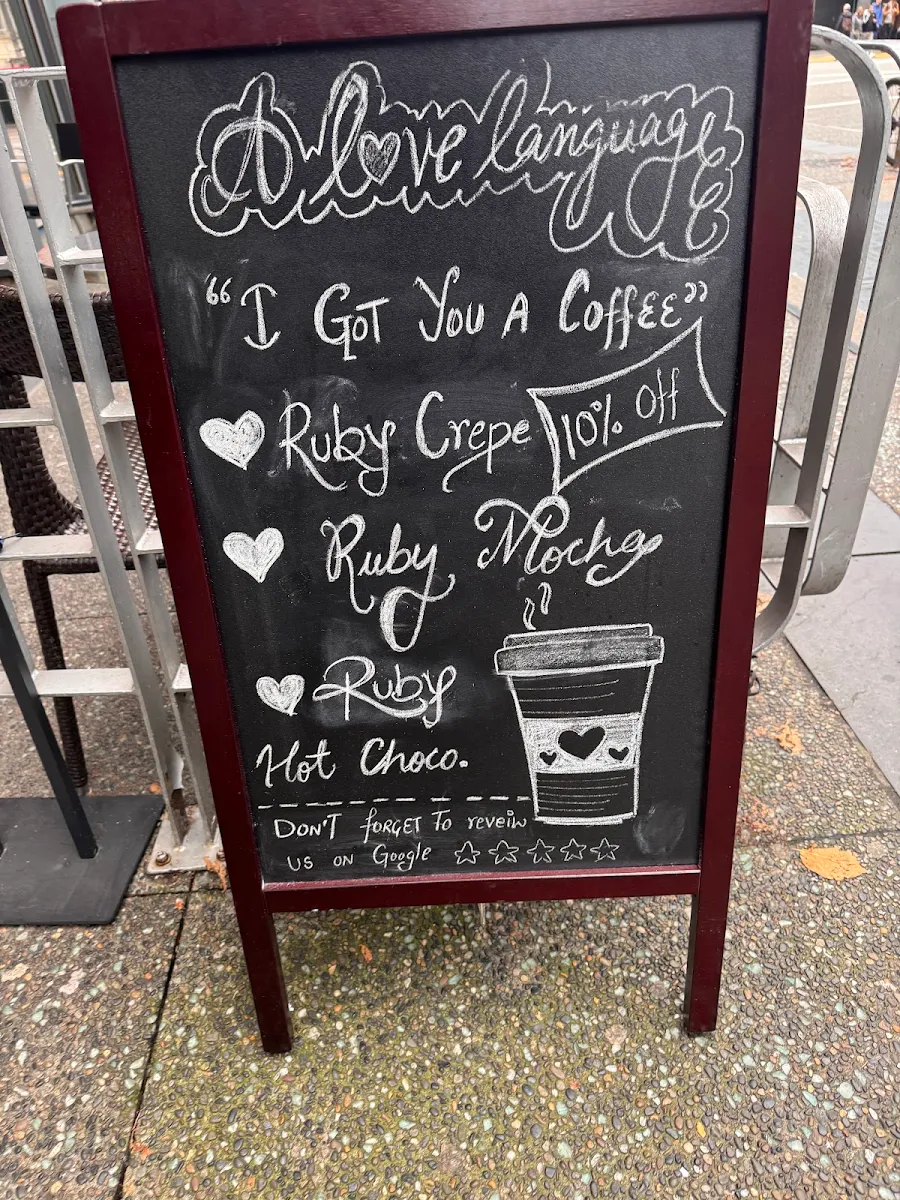 A love language
“I GOT YOU A COFFEE”
Ruby Crepe
10% Off
Ruby Mocha
Ruby
Hot Choco.
DON'T FORGET To reveiw
US ON Google